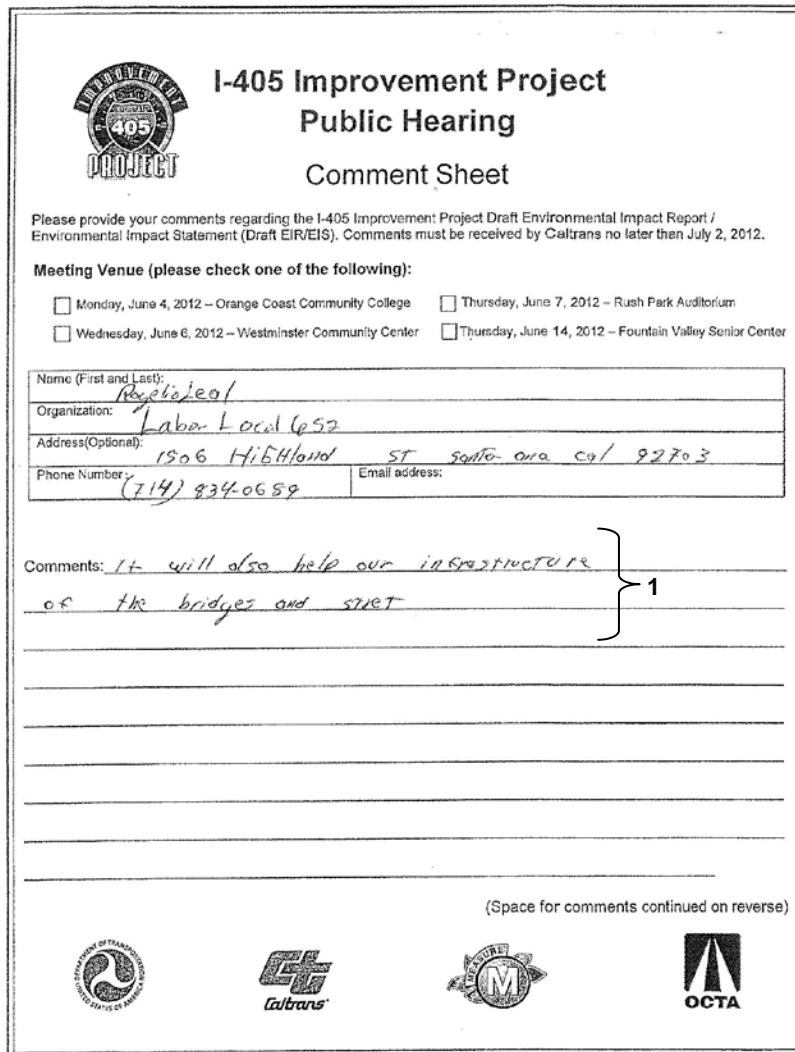 IMPROVEMENT
405
PROJECT
I-405 Improvement Project
Public Hearing
Comment Sheet
Please provide your comments regarding the I-405 Improvement Project Draft Environmental Impact Report /
Environmental Impact Statement (Draft EIR/EIS). Comments must be received by Caltrans no later than July 2, 2012.
Meeting Venue (please check one of the following):
Monday, June 4, 2012 – Orange Coast Community College
Thursday, June 7, 2012 – Rush Park Auditorium
Wednesday, June 6, 2012 – Westminster Community Center
Thursday, June 14, 2012 – Fountain Valley Senior Center
Name (First and Last):
Rogelio Leal
Organization:
Labor Local 652
Address(Optional):
1506 HiGHland ST santa ana cal 92703
Phone Number:
(714) 834-0659
Email address:
Comments: It will also help our infrastructure
of the bridges and stret
1
(Space for comments continued on reverse)
DEPARTMENT OF TRANSPORTATION
UNITED STATES OF AMERICA
Caltrans
MEASURE
M
OCTA